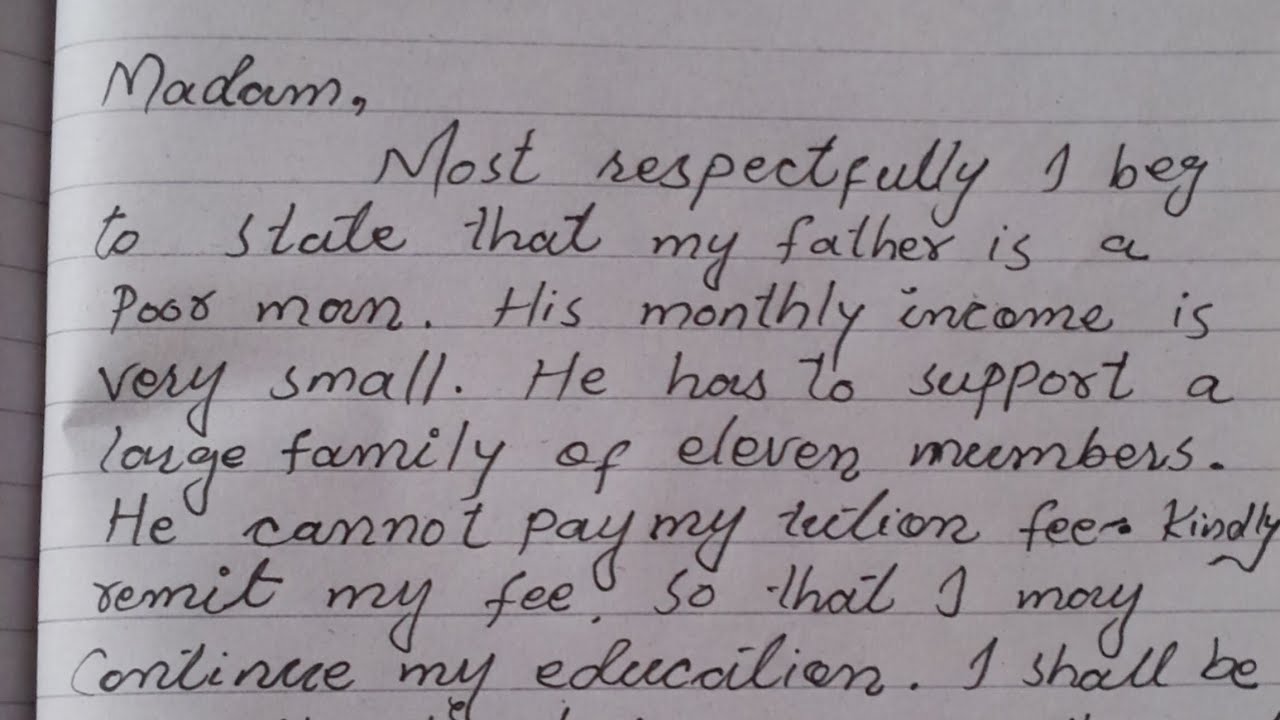 Madam,
Most respectfully I beg
to state that my father is a
Poor man. His monthly income is
very small. He has to support a
large family of eleven meembers.
He cannot pay my tution fee. Kindly
remit my fee. So that I may
Continue my education. I shall be